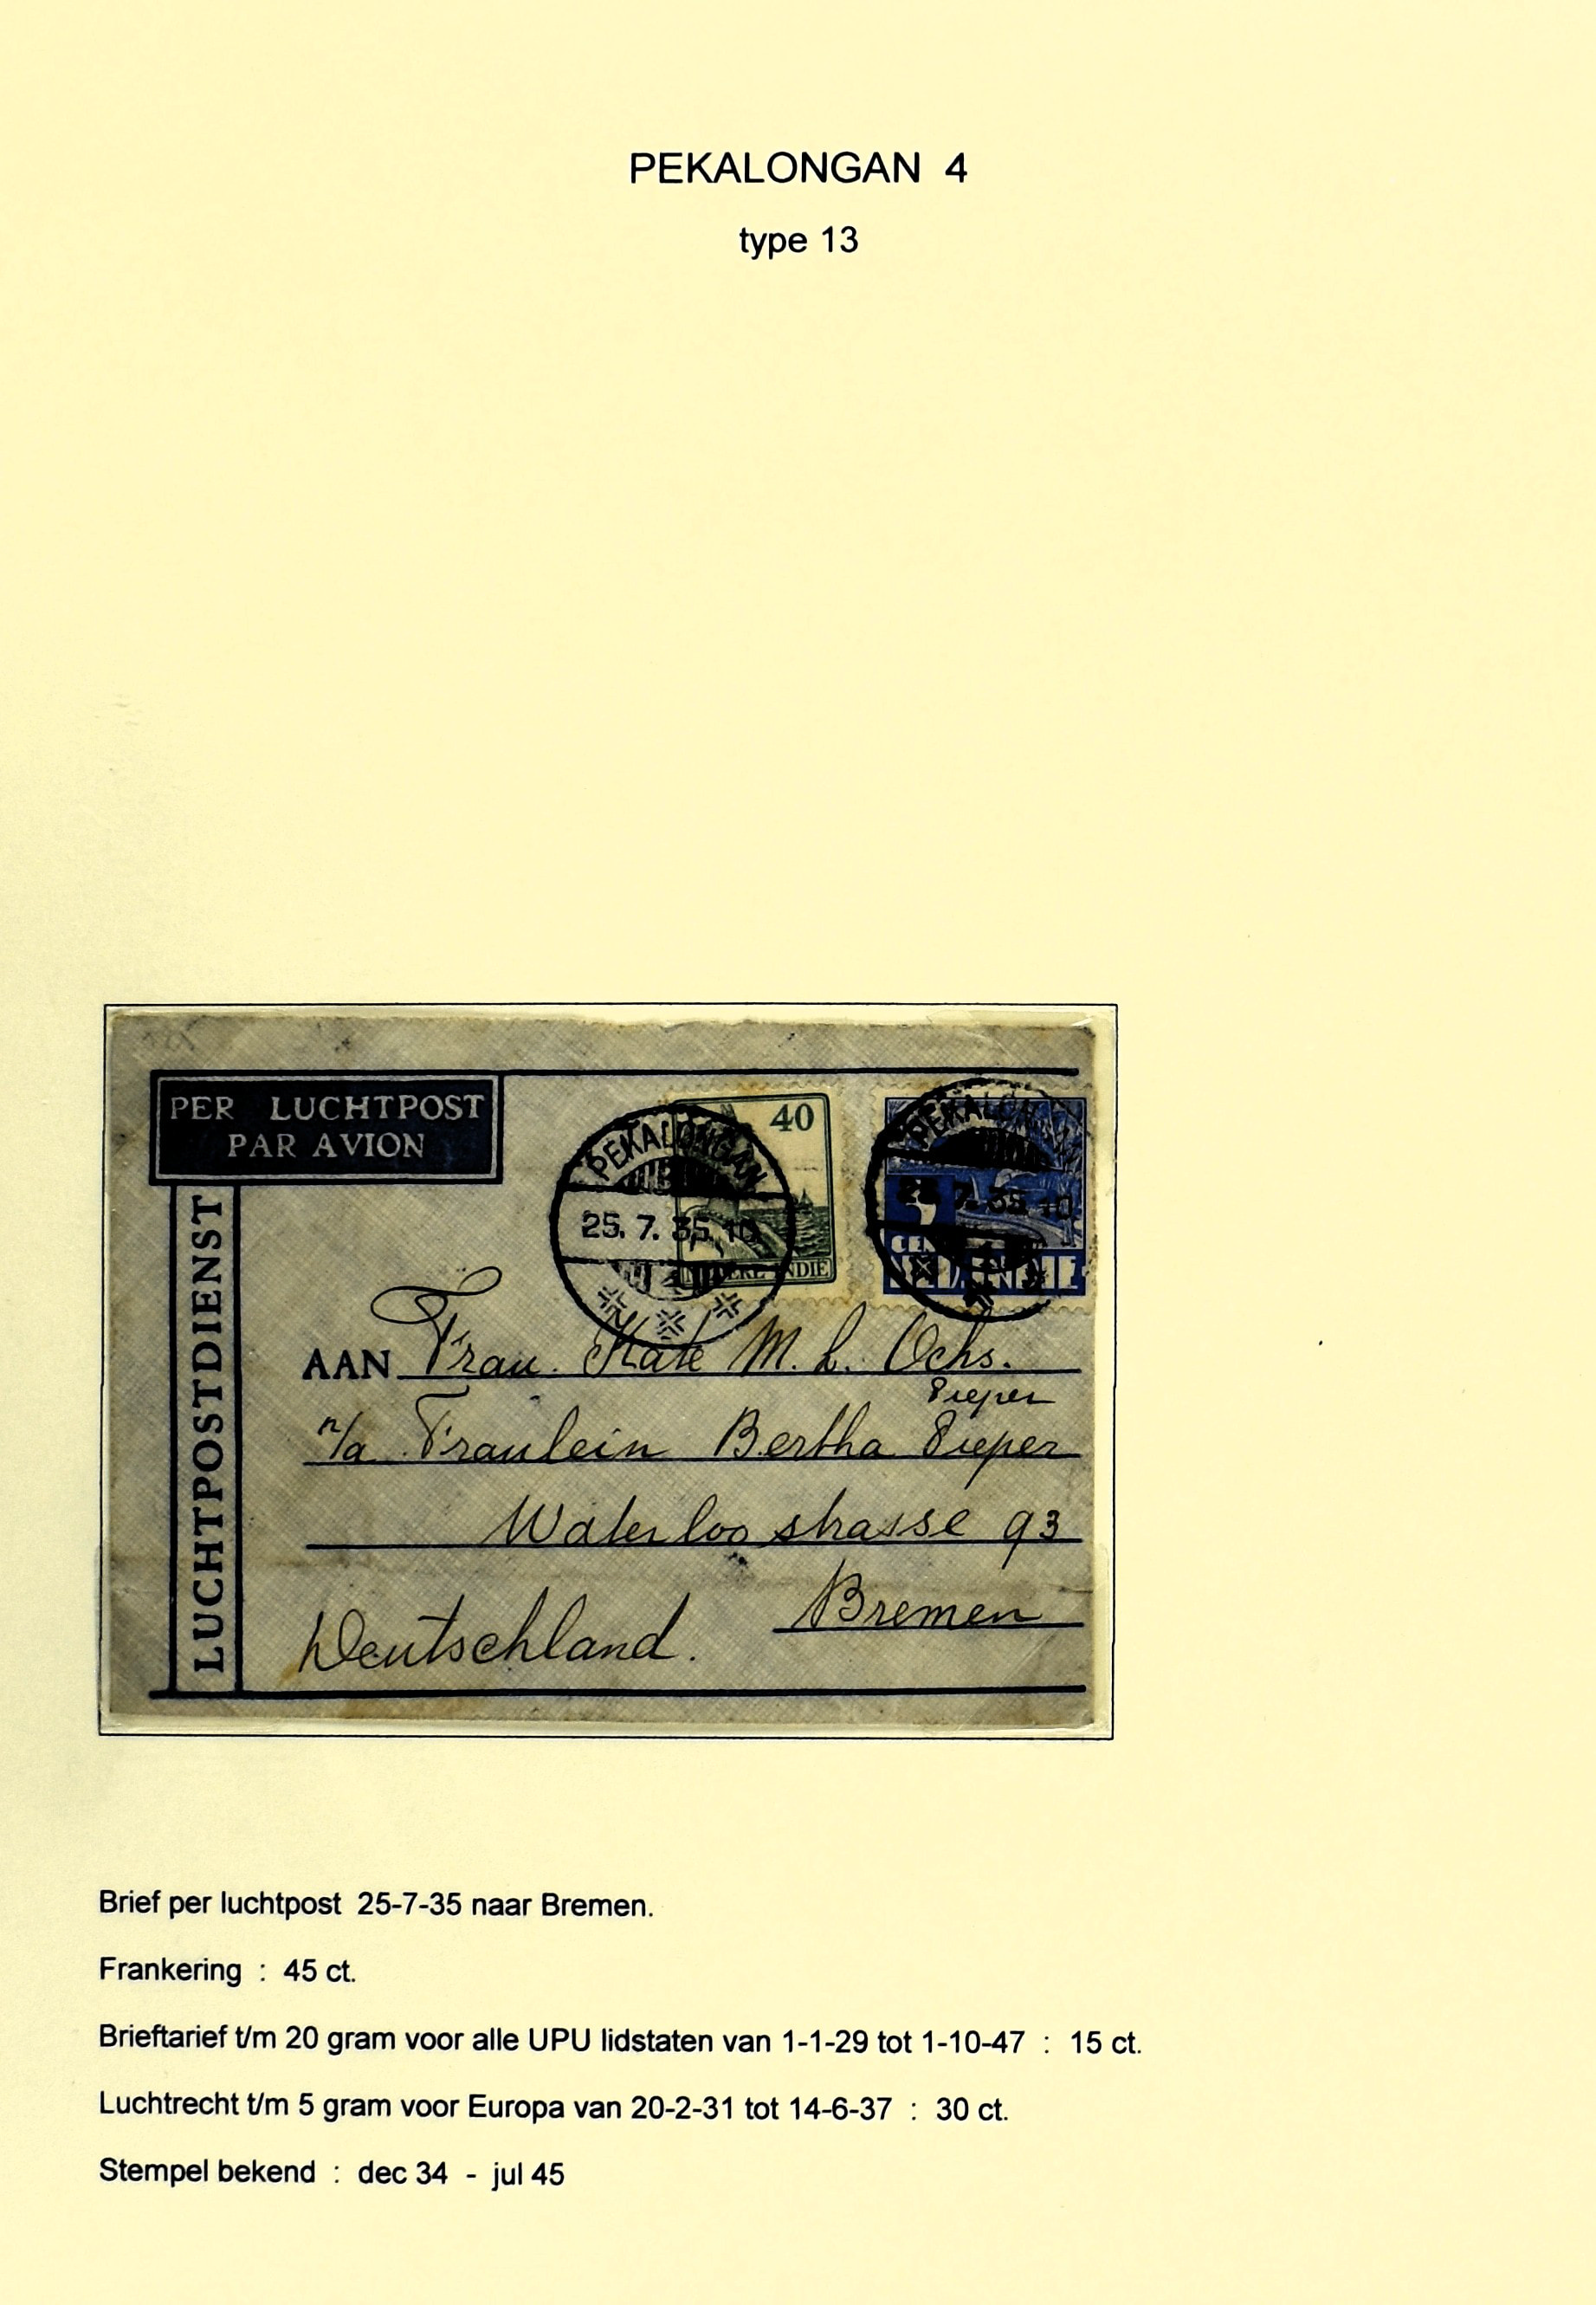 PEKALONGAN 4
type 13
PER LUCHTPOST
PAR AVION
LUCHTPOSTDIENST
40
NEDERL INDIE
PEKALONGAN
25. 7. 35. 10
PEKALON
25. 7. 35. 10
CEN
AAN Frau. Kate M. L. Ochs.
Pieper
n/a Fraulein Bertha Pieper
Waterloo strasse 93
Bremen
Deutschland.
Brief per luchtpost 25-7-35 naar Bremen.
Frankering : 45 ct.
Brieftarief t/m 20 gram voor alle UPU lidstaten van 1-1-29 tot 1-10-47 : 15 ct.
Luchtrecht t/m 5 gram voor Europa van 20-2-31 tot 14-6-37 : 30 ct.
Stempel bekend : dec 34 - jul 45